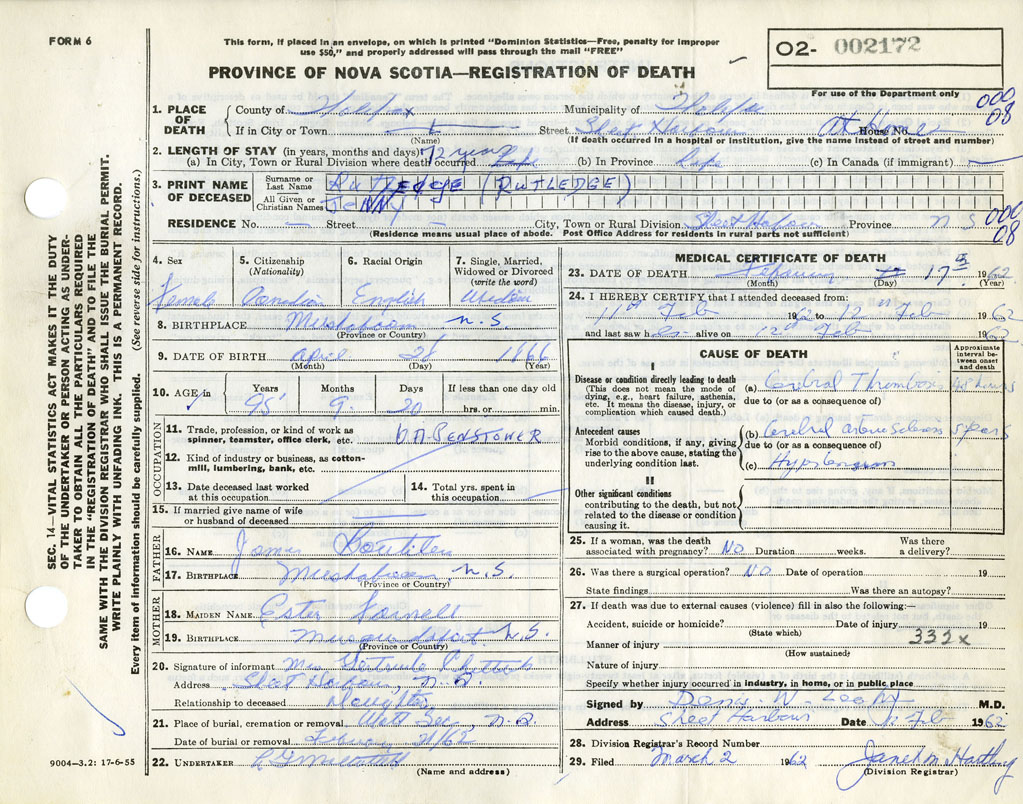 FORM 6
This form, if placed in an envelope, on which is printed "Dominion Statistics—Free, penalty for improper
use $50," and properly addressed will pass through the mail "FREE"
PROVINCE OF NOVA SCOTIA—REGISTRATION OF DEATH
02- 002172
For use of the Department only
SEC. 14—VITAL STATISTICS ACT MAKES IT THE DUTY
OF THE UNDERTAKER OR PERSON ACTING AS UNDER-
TAKER TO OBTAIN ALL THE PARTICULARS REQUIRED
IN THE "REGISTRATION OF DEATH" AND TO FILE THE
SAME WITH THE DIVISION REGISTRAR WHO SHALL ISSUE THE BURIAL PERMIT.
WRITE PLAINLY WITH UNFADING INK. THIS IS A PERMANENT RECORD.
Every item of information should be carefully supplied. (See reverse side for instructions.)
1. PLACE OF DEATH
County of Halifax Municipality of Halifax 000
08
If in City or Town Street Sheet Harbour House No. At Home
(Name) (If death occurred in a hospital or institution, give the name instead of street and number)
2. LENGTH OF STAY (in years, months and days) 72 years
(a) In City, Town or Rural Division where death occurred (b) In Province Life (c) In Canada (if immigrant)
3. PRINT NAME OF DECEASED
Surname or Last Name RUTLEDGE (RUTLEDGE)
All Given or Christian Names JENNY
RESIDENCE No. Street City, Town or Rural Division Sheet Harbour Province N S 000
08
(Residence means usual place of abode. Post Office Address for residents in rural parts not sufficient)
4. Sex
Female
5. Citizenship
(Nationality)
Canadian
6. Racial Origin
English
7. Single, Married,
Widowed or Divorced
(write the word)
Widow
8. BIRTHPLACE Mushaboom N.S.
(Province or Country)
9. DATE OF BIRTH April 28 1866
(Month) (Day) (Year)
10. AGE in Years Months Days If less than one day old
95 9 20 hrs. or min.
OCCUPATION
11. Trade, profession, or kind of work as
spinner, teamster, office clerk, etc.
12. Kind of industry or business, as cotton-
mill, lumbering, bank, etc.
13. Date deceased last worked
at this occupation
14. Total yrs. spent in
this occupation
15. If married give name of wife
or husband of deceased
FATHER
16. NAME James Boutilier
17. BIRTHPLACE Mushaboom N.S.
(Province or Country)
MOTHER
18. MAIDEN NAME Ester
19. BIRTHPLACE N.S.
(Province or Country)
20. Signature of informant Mrs Gertrude
Address Sheet Harbour, N.S.
Relationship to deceased Daughter
21. Place of burial, cremation or removal
Date of burial or removal February 21/62
22. UNDERTAKER
(Name and address)
9004—3.2: 17-6-55
MEDICAL CERTIFICATE OF DEATH
23. DATE OF DEATH February 17 1962
(Month) (Day) (Year)
24. I HEREBY CERTIFY that I attended deceased from:
11th Feb 1962 to 12 Feb 1962
and last saw her alive on 12th Feb 1962
CAUSE OF DEATH
Approximate
interval be-
tween onset
and death
I
Disease or condition directly leading to death
(This does not mean the mode of
dying, e.g., heart failure, asthenia,
etc. It means the disease, injury, or
complication which caused death.)
(a) Cerebral Thrombosis
due to (or as a consequence of)
Antecedent causes
Morbid conditions, if any, giving
rise to the above cause, stating the
underlying condition last.
(b) Cerebral arteriosclerosis 5 years
due to (or as a consequence of)
(c) Hypertension
II
Other significant conditions
contributing to the death, but not
related to the disease or condition
causing it.
25. If a woman, was the death
associated with pregnancy? NO Duration weeks. Was there
a delivery?
26. Was there a surgical operation? NO Date of operation 19
State findings Was there an autopsy?
27. If death was due to external causes (violence) fill in also the following:—
Accident, suicide or homicide? Date of injury 19
(State which)
Manner of injury 332x
(How sustained)
Nature of injury
Specify whether injury occurred in industry, in home, or in public place
Signed by M.D.
Address Sheet Harbour Date Feb 1962
28. Division Registrar's Record Number
29. Filed March 2 1962 Janet M Hartling
(Division Registrar)